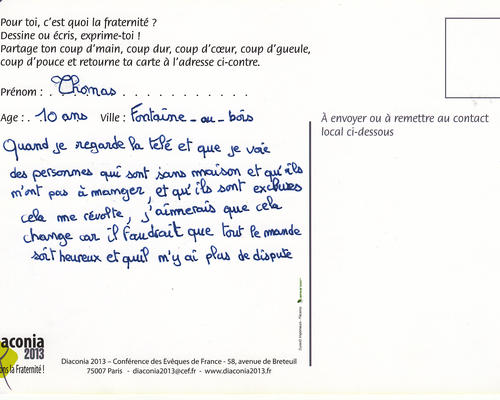 Pour toi, c'est quoi la fraternité ?
Dessine ou écris, exprime-toi !
Partage ton coup d'main, coup dur, coup d'cœur, coup d'gueule,
coup d'pouce et retourne ta carte à l'adresse ci-contre.
Prénom : . Thomas . . . . . . . . . . .
Age : . 10 ans Ville : Fontaine-au-bois
Quand je regarde la télé et que je voie
des personnes qui sont sans maison et qu'ils
m'ont pas à manger, et qu'ils sont exclues
cela me révolte, j'aimerais que cela
change car il faudrait que tout le monde
soit heureux et quil m'y ai plus de dispute
À envoyer ou à remettre au contact
local ci-dessous
aconia
2013
ons la Fraternité !
Diaconia 2013 – Conférence des Evêques de France - 58, avenue de Breteuil
75007 Paris - diaconia2013@cef.fr - www.diaconia2013.fr